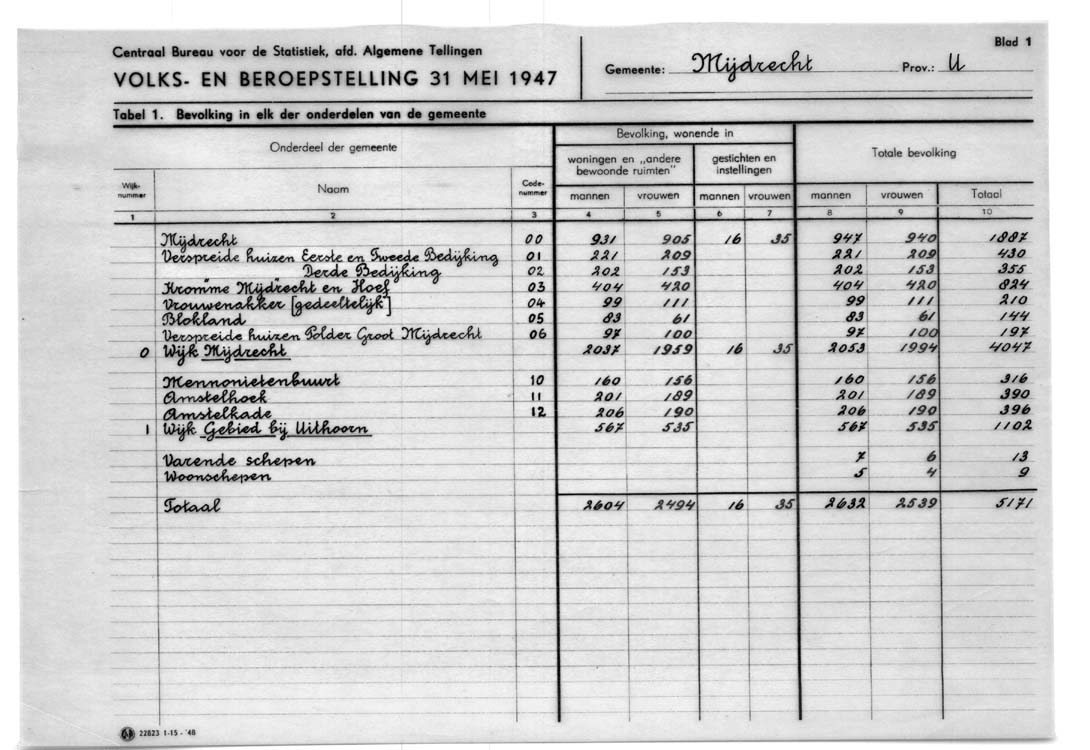 Centraal Bureau voor de Statistiek, afd. Algemene Tellingen
VOLKS- EN BEROEPSTELLING 31 MEI 1947
Gemeente: Mijdrecht Prov.: U
Blad 1
Tabel 1. Bevolking in elk der onderdelen van de gemeente
Onderdeel der gemeente
Bevolking, wonende in
Totale bevolking
woningen en „andere bewoonde ruimten”
gestichten en instellingen
Wijk-nummer Naam Code-nummer mannen vrouwen mannen vrouwen mannen vrouwen Totaal
1 2 3 4 5 6 7 8 9 10
Mijdrecht 00 931 905 16 35 947 940 1887
Verspreide huizen Eerste en Tweede Bedijking 01 221 209 221 209 430
" " Derde Bedijking 02 202 153 202 153 355
Kromme Mijdrecht en Hoef 03 404 420 404 420 824
Vrouwenakker [gedeeltelijk] 04 99 111 99 111 210
Blokland 05 83 61 83 61 144
Verspreide huizen Polder Groot Mijdrecht 06 97 100 97 100 197
0 Wijk Mijdrecht 2037 1959 16 35 2053 1994 4047
Mennonietenbuurt 10 160 156 160 156 316
Amstelhoek 11 201 189 201 189 390
Amstelkade 12 206 190 206 190 396
1 Wijk Gebied bij Uithoorn 567 535 567 535 1102
Varende schepen 7 6 13
Woonschepen 5 4 9
Totaal 2604 2494 16 35 2632 2539 5171
22823 1-15-'48